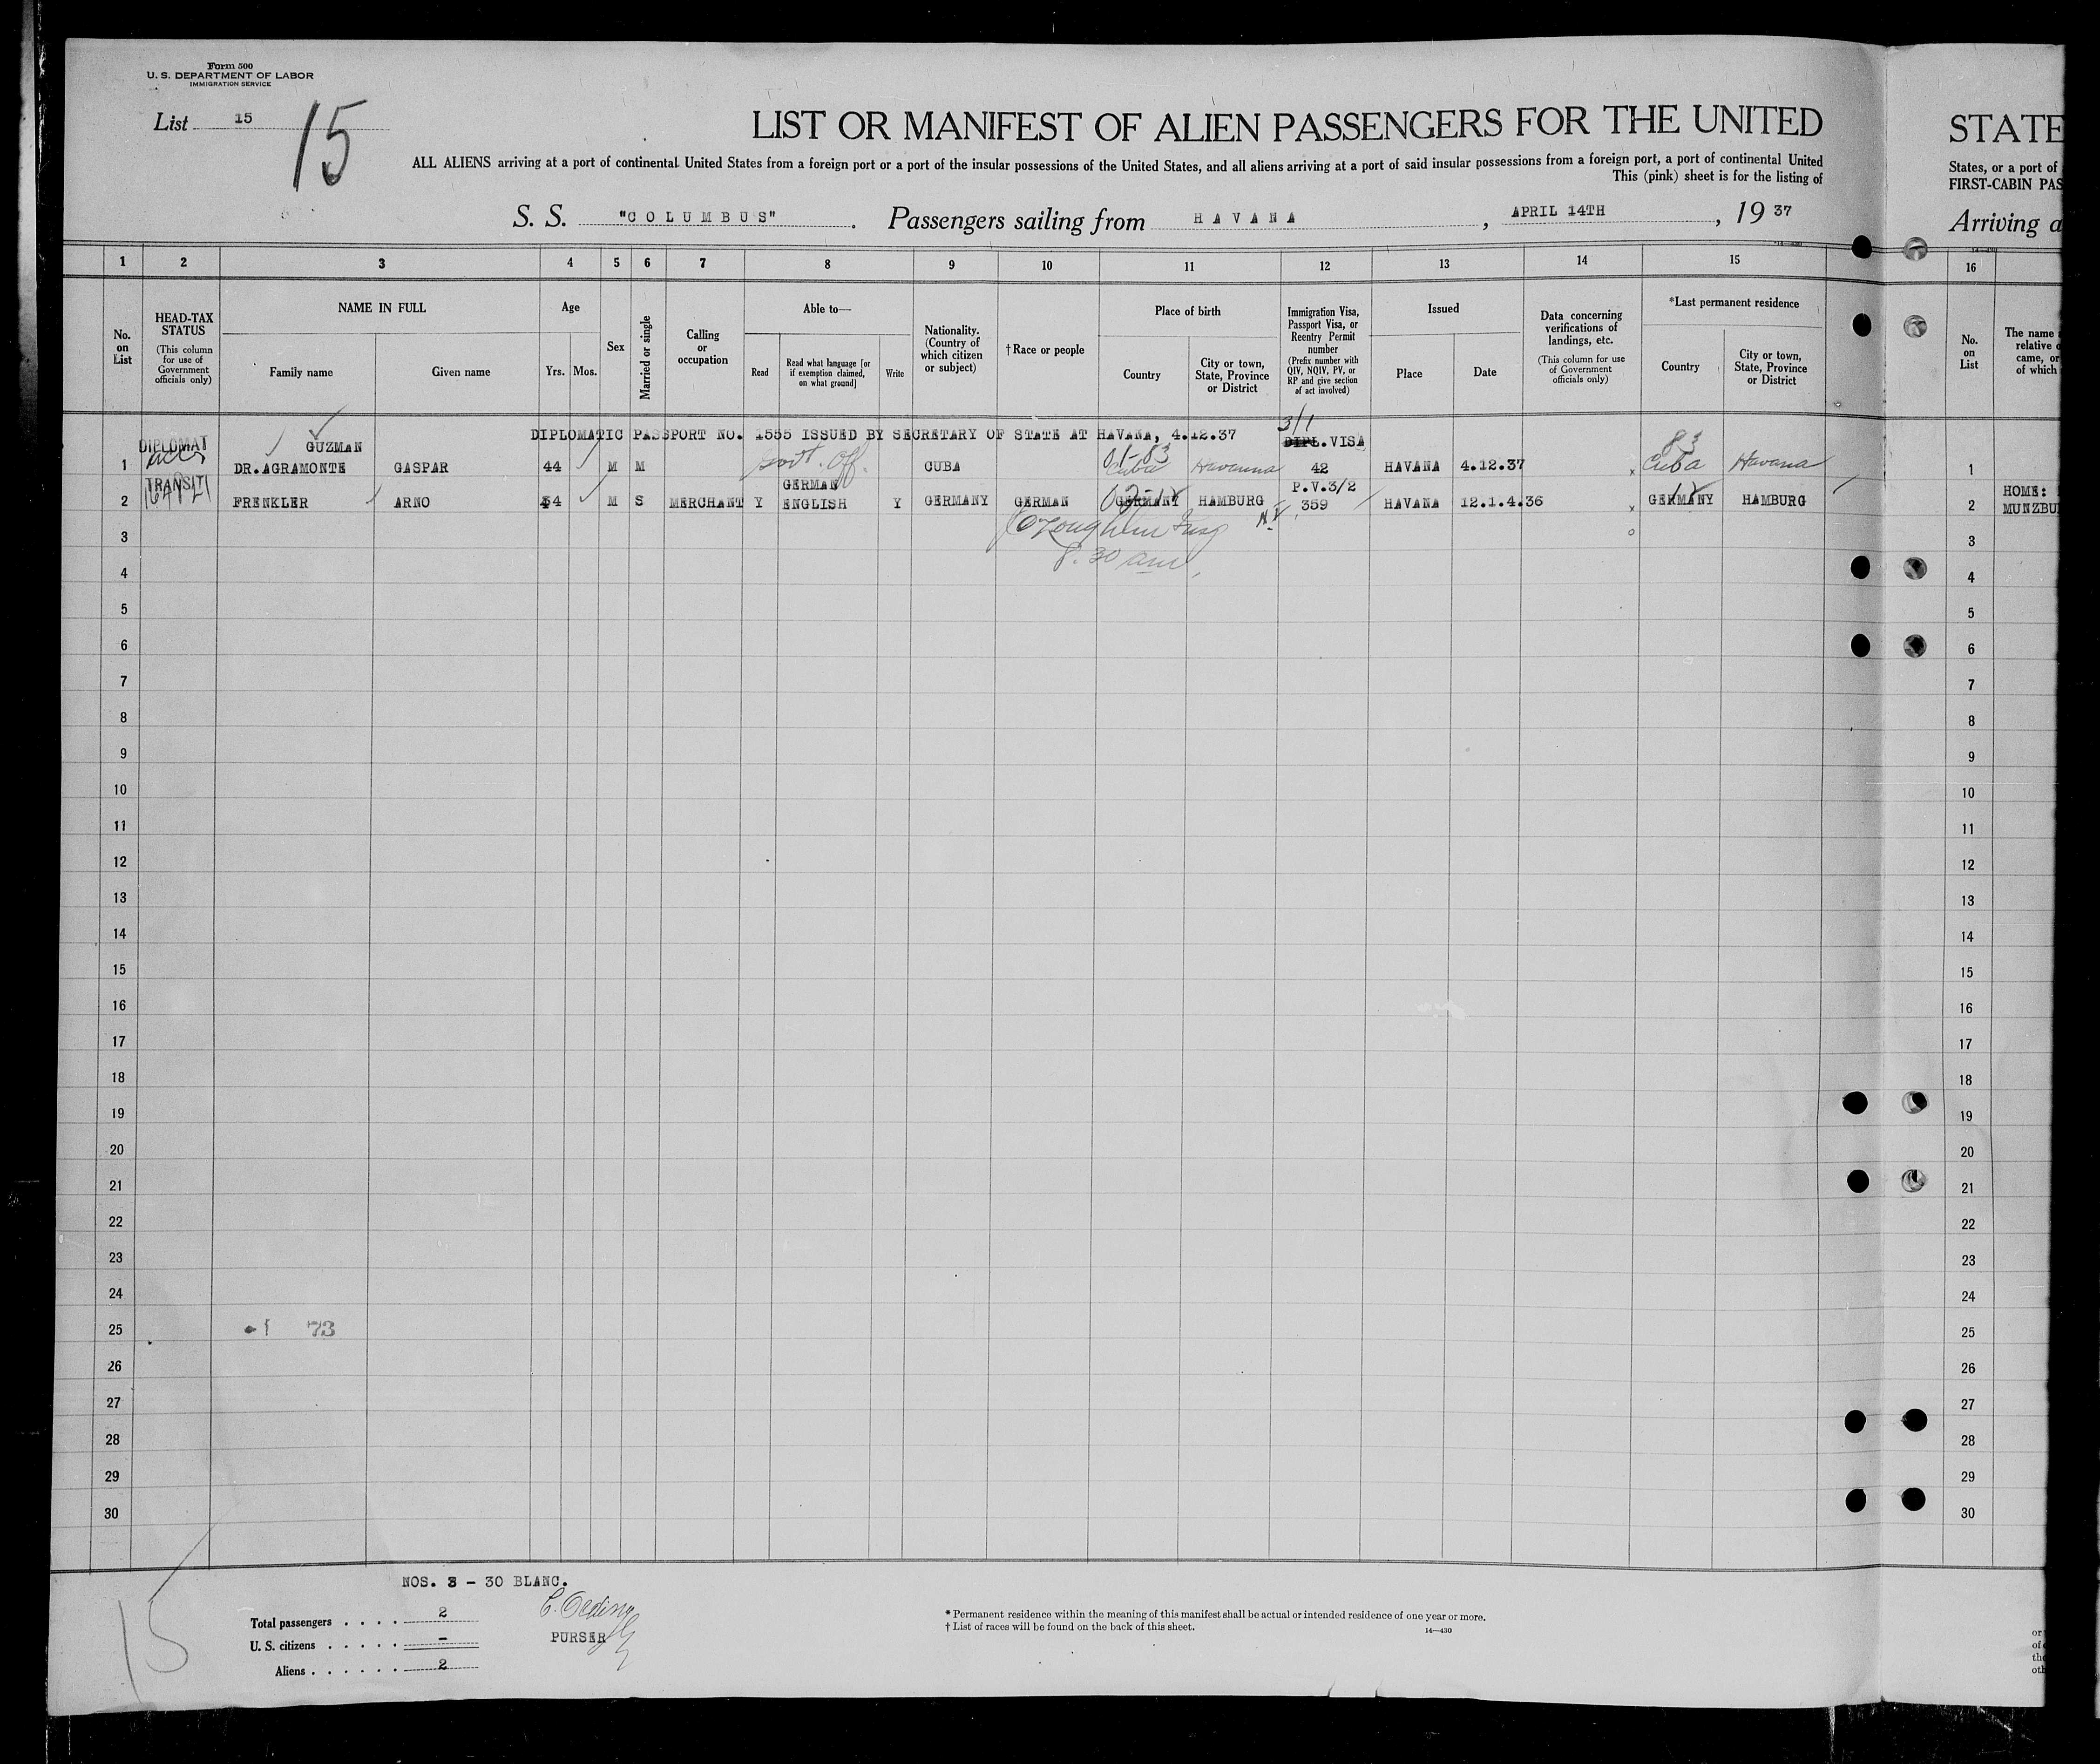 Form 500
U. S. DEPARTMENT OF LABOR
IMMIGRATION SERVICE
List 15
15
LIST OR MANIFEST OF ALIEN PASSENGERS FOR THE UNITED
STATE
ALL ALIENS arriving at a port of continental United States from a foreign port or a port of the insular possessions of the United States, and all aliens arriving at a port of said insular possessions from a foreign port, a port of continental United
States, or a port of
This (pink) sheet is for the listing of
FIRST-CABIN PAS
S. S. "COLUMBUS". Passengers sailing from HAVANA, APRIL 14TH, 1937
Arriving a
1 2 3 4 5 6 7 8 9 10 11 12 13 14 15 16
No. on List
HEAD-TAX STATUS
(This column for use of Government officials only)
NAME IN FULL
Family name
Given name
Age
Yrs.
Mos.
Sex
Married or single
Calling or occupation
Able to—
Read
Read what language [or if exemption claimed, on what ground]
Write
Nationality. (Country of which citizen or subject)
† Race or people
Place of birth
Country
City or town, State, Province or District
Immigration Visa, Passport Visa, or Reentry Permit number
(Prefix number with QIV, NQIV, PV, or RP and give section of act involved)
Issued
Place
Date
Data concerning verifications of landings, etc.
(This column for use of Government officials only)
*Last permanent residence
Country
City or town, State, Province or District
No. on List
The name
relative
came, or
of which
3/1
DIPLOMAT GUZMAN DIPLOMATIC PASSPORT NO. 1555 ISSUED BY SECRETARY OF STATE AT HAVANA, 4.12.37 DIPL.VISA
01-83 83
1 DR.AGRAMONTE GASPAR 44 M M Govt. Off. CUBA Cuba Havanna 42 HAVANA 4.12.37 x Cuba Havana 1
TRANSIT GERMAN P.V.3/2
2 FRENKLER ARNO 54 M S MERCHANT Y ENGLISH Y GERMANY GERMAN GERMANY HAMBURG 359 HAVANA 12.1.4.36 x GERMANY HAMBURG 2 HOME:
MUNZBU
8.30 am
3 3
4 4
5 5
6 6
7 7
8 8
9 9
10 10
11 11
12 12
13 13
14 14
15 15
16 16
17 17
18 18
19 19
20 20
21 21
22 22
23 23
24 24
25 73 25
26 26
27 27
28 28
29 29
30 30
NOS. 3 - 30 BLANC.
15
Total passengers . . . . 2
U. S. citizens . . . . . -
Aliens . . . . . . 2
PURSER
* Permanent residence within the meaning of this manifest shall be actual or intended residence of one year or more.
† List of races will be found on the back of this sheet.
14—430
or
of
the
oth